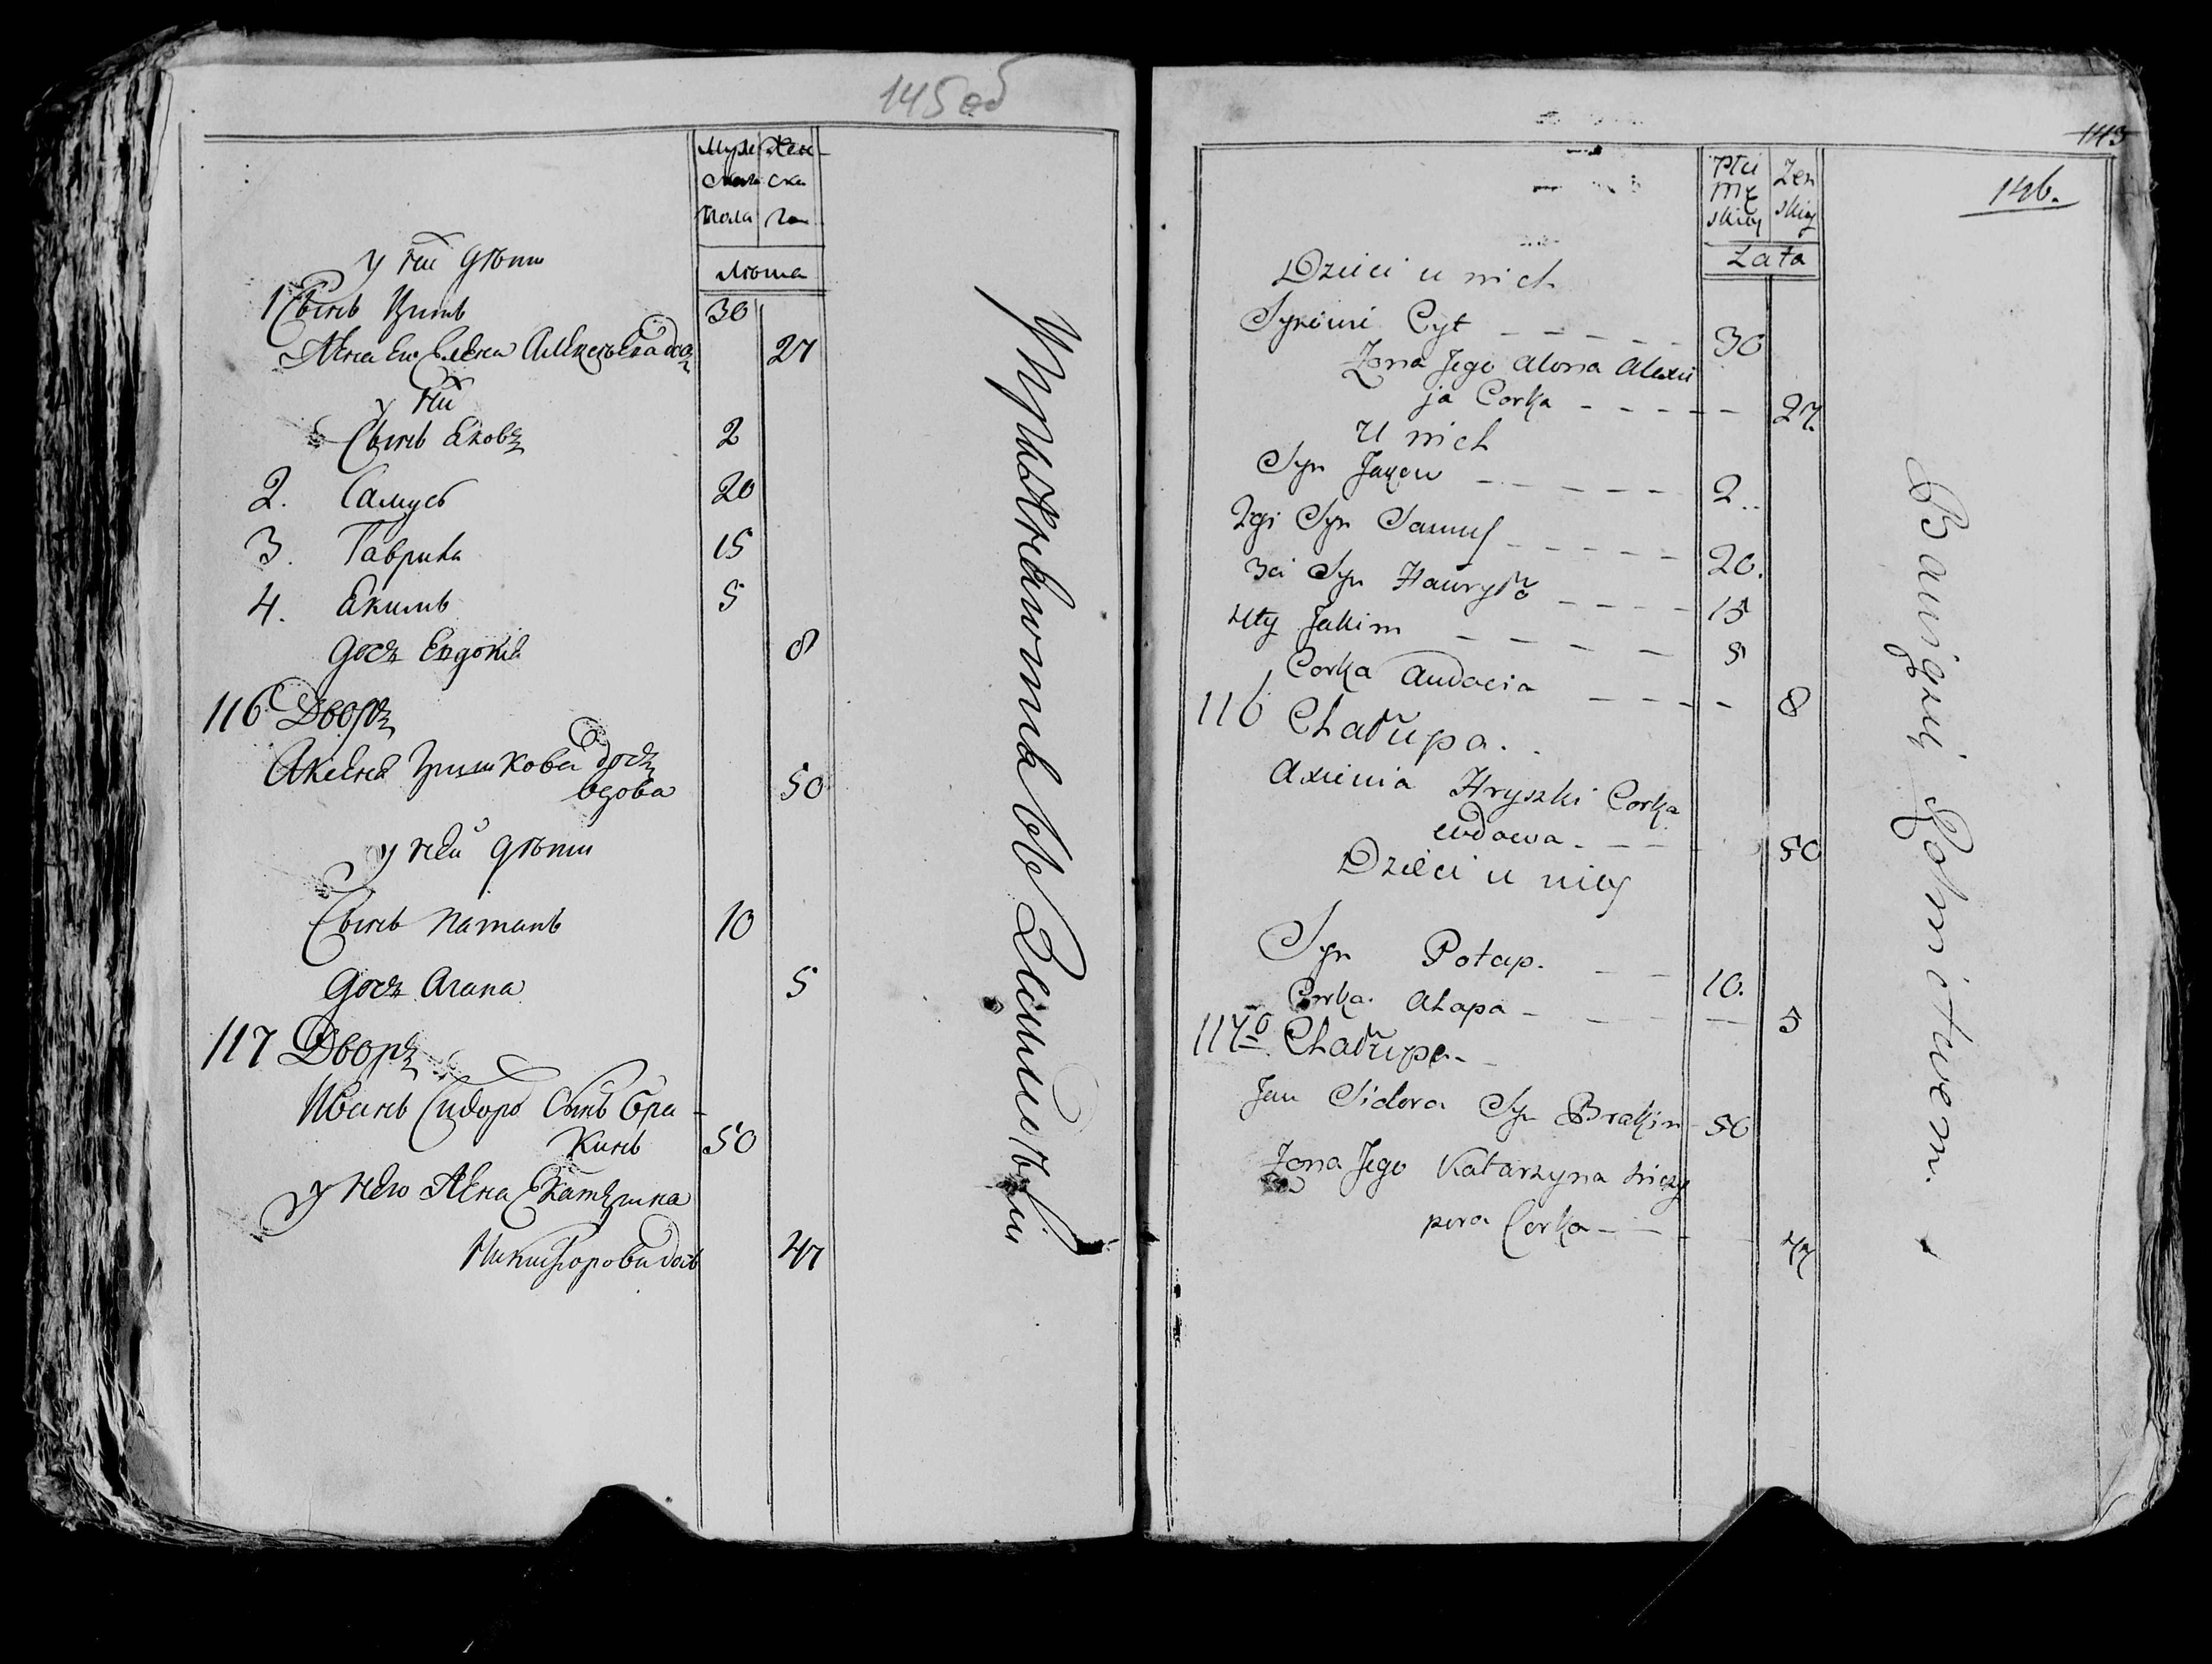 145об
Муже Жен
ска ска
Пола Пол
Лѣта
у них дѣти
1 Сынъ Цитъ 30
Жена ег Елена Алексѣева доч 27
у них
Сынъ Яковъ 2
2. Самусь 20
3. Гаврила 15
4. Екимъ 5
дочь Евдокія 8
116 Дворъ
Аксенія Гришкова дочь
вдова 50
у ней дѣти
Сынъ Патапъ 10
дочь Агапа 5
117 Дворъ
Иванъ Сидоро Сынъ Бра
кинъ 50
у него Жена Катерина
Никифорова дочь 47
Упражняются въ Земледѣліи
143
146.
Płci Mę skiey Zen skiey
Lata
Dzieci u nich
Syn Cyt 30
Zona Jego Alona Alexie
ja Corka 27.
U nich
Syn Jakow 2
2gi Syn Samuś 20.
3ci Syn Hauryło 15
4ty Jakim 5
Corka Audocia 8
116 Chałupa.
Axienia Hryszki Corka
wdowa 50
Dzieci u niey
Syn Potap. 10.
Corka Ahapa 5
117o Chałupa
Jan Sidora Syn Brakin 50
Zona Jego Katarzyna Niczy
pora Corka 47
Bawią się Rolnictwem.